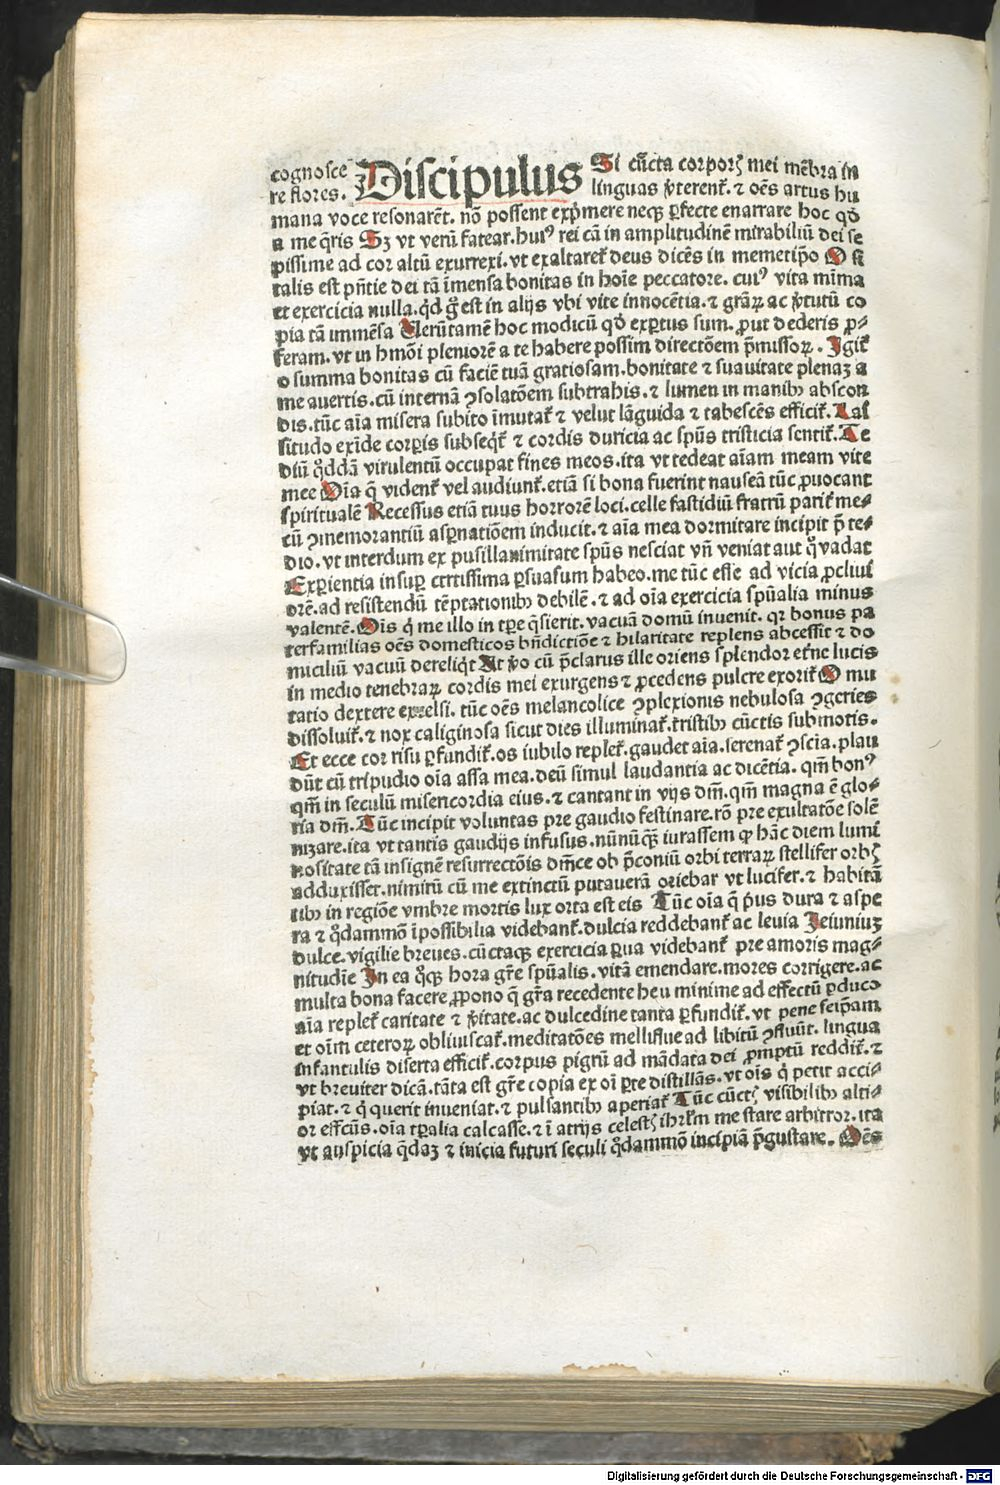 cognosce Discipulus Si cūcta corporꝭ mei mēbra in
re flores. linguas ꝟterentᷣ. ⁊ oēs artus hu
mana voce resonarēt. nō possent exp̄mere neqꝫ ꝑfecte enarrare hoc qđ
a me q̄ris Sꝫ vt verū fatear. huiꝰ rei cā in amplitudinē mirabiliū dei se
pissime ad cor altū exurrexi. vt exaltaretᷣ deus dicēs in memetip̄o O si
talis est p̄ntie dei tā īmensa bonitas in hoīe peccatore. cuiꝰ vita mīma
et exercicia nulla. qͥd g̊ est in alijs vbi vite innocētia. ⁊ grāꝝ ac ꝟtutū co
pia tā immēsa Ueruntamē hoc modicū qđ exꝑtus sum. ꝓut dederis ꝓ-
feram. vt in hmōi pleniorē a te habere possim directōem p̄missoꝝ. Igitᷣ
o summa bonitas cū faciē tuā gratiosam. bonitate ⁊ suauitate plenaꝫ a
me auertis. cū internā ꝯsolatōem subtrahis. ⁊ lumen in manibꝫ abscon
dis. tūc aīa misera subito īmutatᷣ ⁊ velut lāguida ⁊ tabescēs efficitᷣ. Las
situdo exīde corꝑis subseqͥtᷣ ⁊ cordis duricia ac spūs tristicia sentitᷣ. Te
diū qͦddā virulentū occupat fines meos. ita vt tedeat aīam meam vite
mee Oīa q̄ videntᷣ vel audiuntᷣ. etiā si bona fuerint nauseā tūc ꝓuocant
spiritualē Recessus etiā tuus horrorē loci. celle fastidiū fratrū paritᷣ me-
cū ꝯmemorantiū asꝑnatiōem inducit. ⁊ aīa mea dormitare incipit p̄ te-
dio. vt interdum ex pusillanimitate spūs nesciat vn̄ veniat aut qͦ vadat
Experientia insuꝑ certissima ꝑsuasum habeo. me tūc esse ad vicia ꝓcliui
orē. ad resistendū tēptationibꝫ debilē. ⁊ ad oīa exercicia spūalia minus
valentē. Oīs qͥ me illo in tꝑe q̄sierit. vacuā domū inuenit. qꝛ bonus pa
terfamilias oēs domesticos bn̄dictiōe ⁊ hilaritate replens abcessit ⁊ do
miciliū vacuū dereliqͥt At ꝟo cū p̄clarus ille oriens splendor et̄ne lucis
in medio tenebraꝝ cordis mei exurgens ⁊ ꝓcedens pulcre exoritᷣ O mu
tatio dextere excelsi. tūc oēs melancolice ꝯplexionis nebulosa ꝯgeries
dissoluitᷣ. ⁊ nox caliginosa sicut dies illuminatᷣ. tristibꝫ cūctis submotis.
Et ecce cor risu ꝑfunditᷣ. os iubilo repletᷣ. gaudet aīa. serenatᷣ ꝯscīa. plau
dūt cū tripudio oīa assa mea. deū simul laudantia ac dicētia. qm̄ bonꝰ
qm̄ in seculū misericordia eius. ⁊ cantant in vijs dn̄i. qm̄ magna ē glo-
ria dn̄i. Tūc incipit voluntas pre gaudio festinare. rō pre exultatōe solē
nizare. ita vt tantis gaudijs infusus. nūnūqꝫ iurassem ꝙ hāc diem lumi
nositate tā insignē resurrectōis dn̄ice ob p̄coniū orbi terraꝝ stellifer orbꝭ
adduxisset. nimirū cū me extinctū putauerā oriebar vt lucifer. ⁊ habitā
tibꝫ in regiōe vmbre mortis lux orta est eis Tūc oīa q̄ pͥus dura ⁊ aspe
ra ⁊ qͦdammō īpossibilia videbantᷣ. dulcia reddebantᷣ ac leuia Ieiuniuꝫ
dulce. vigilie breues. cūctaqꝫ exercicia ꝑua videbantᷣ pre amoris mag-
nitudīe In ea qͦqꝫ hora gr̄e spūalis. vitā emendare. mores corrigere. ac
multa bona facere ꝓpono q̄ gr̄a recedente heu minime ad effectū ꝑduco
aīa repletᷣ caritate ⁊ ꝟitate. ac dulcedine tanta ꝑfunditᷣ. vt pene seip̄am
et oīm ceteroꝝ obliuiscatᷣ. meditatōes melliflue ad libitū ꝯfluūt. lingua
infantulis diserta efficitᷣ. corpus pigrū ad mādata dei ꝓmptū redditᷣ. ⁊
vt breuiter dicā. tāta est gr̄e copia ex oī ꝑte distillās. vt oīs qͥ petit acci-
piat. ⁊ qͥ querit inueniat. ⁊ pulsantibꝫ aperiatᷣ Tūc cūctꝭ visibilibꝫ alti-
or effcūs. oīa tꝑalia calcasse. ⁊ ī atrijs celestꝭ ihrl̄m me stare arbitror. ita
vt auspicia q̄daꝫ ⁊ inicia futuri seculi qͦdammō incipiā p̄gustare. Oēs
Digitalisierung gefördert durch die Deutsche Forschungsgemeinschaft - DFG